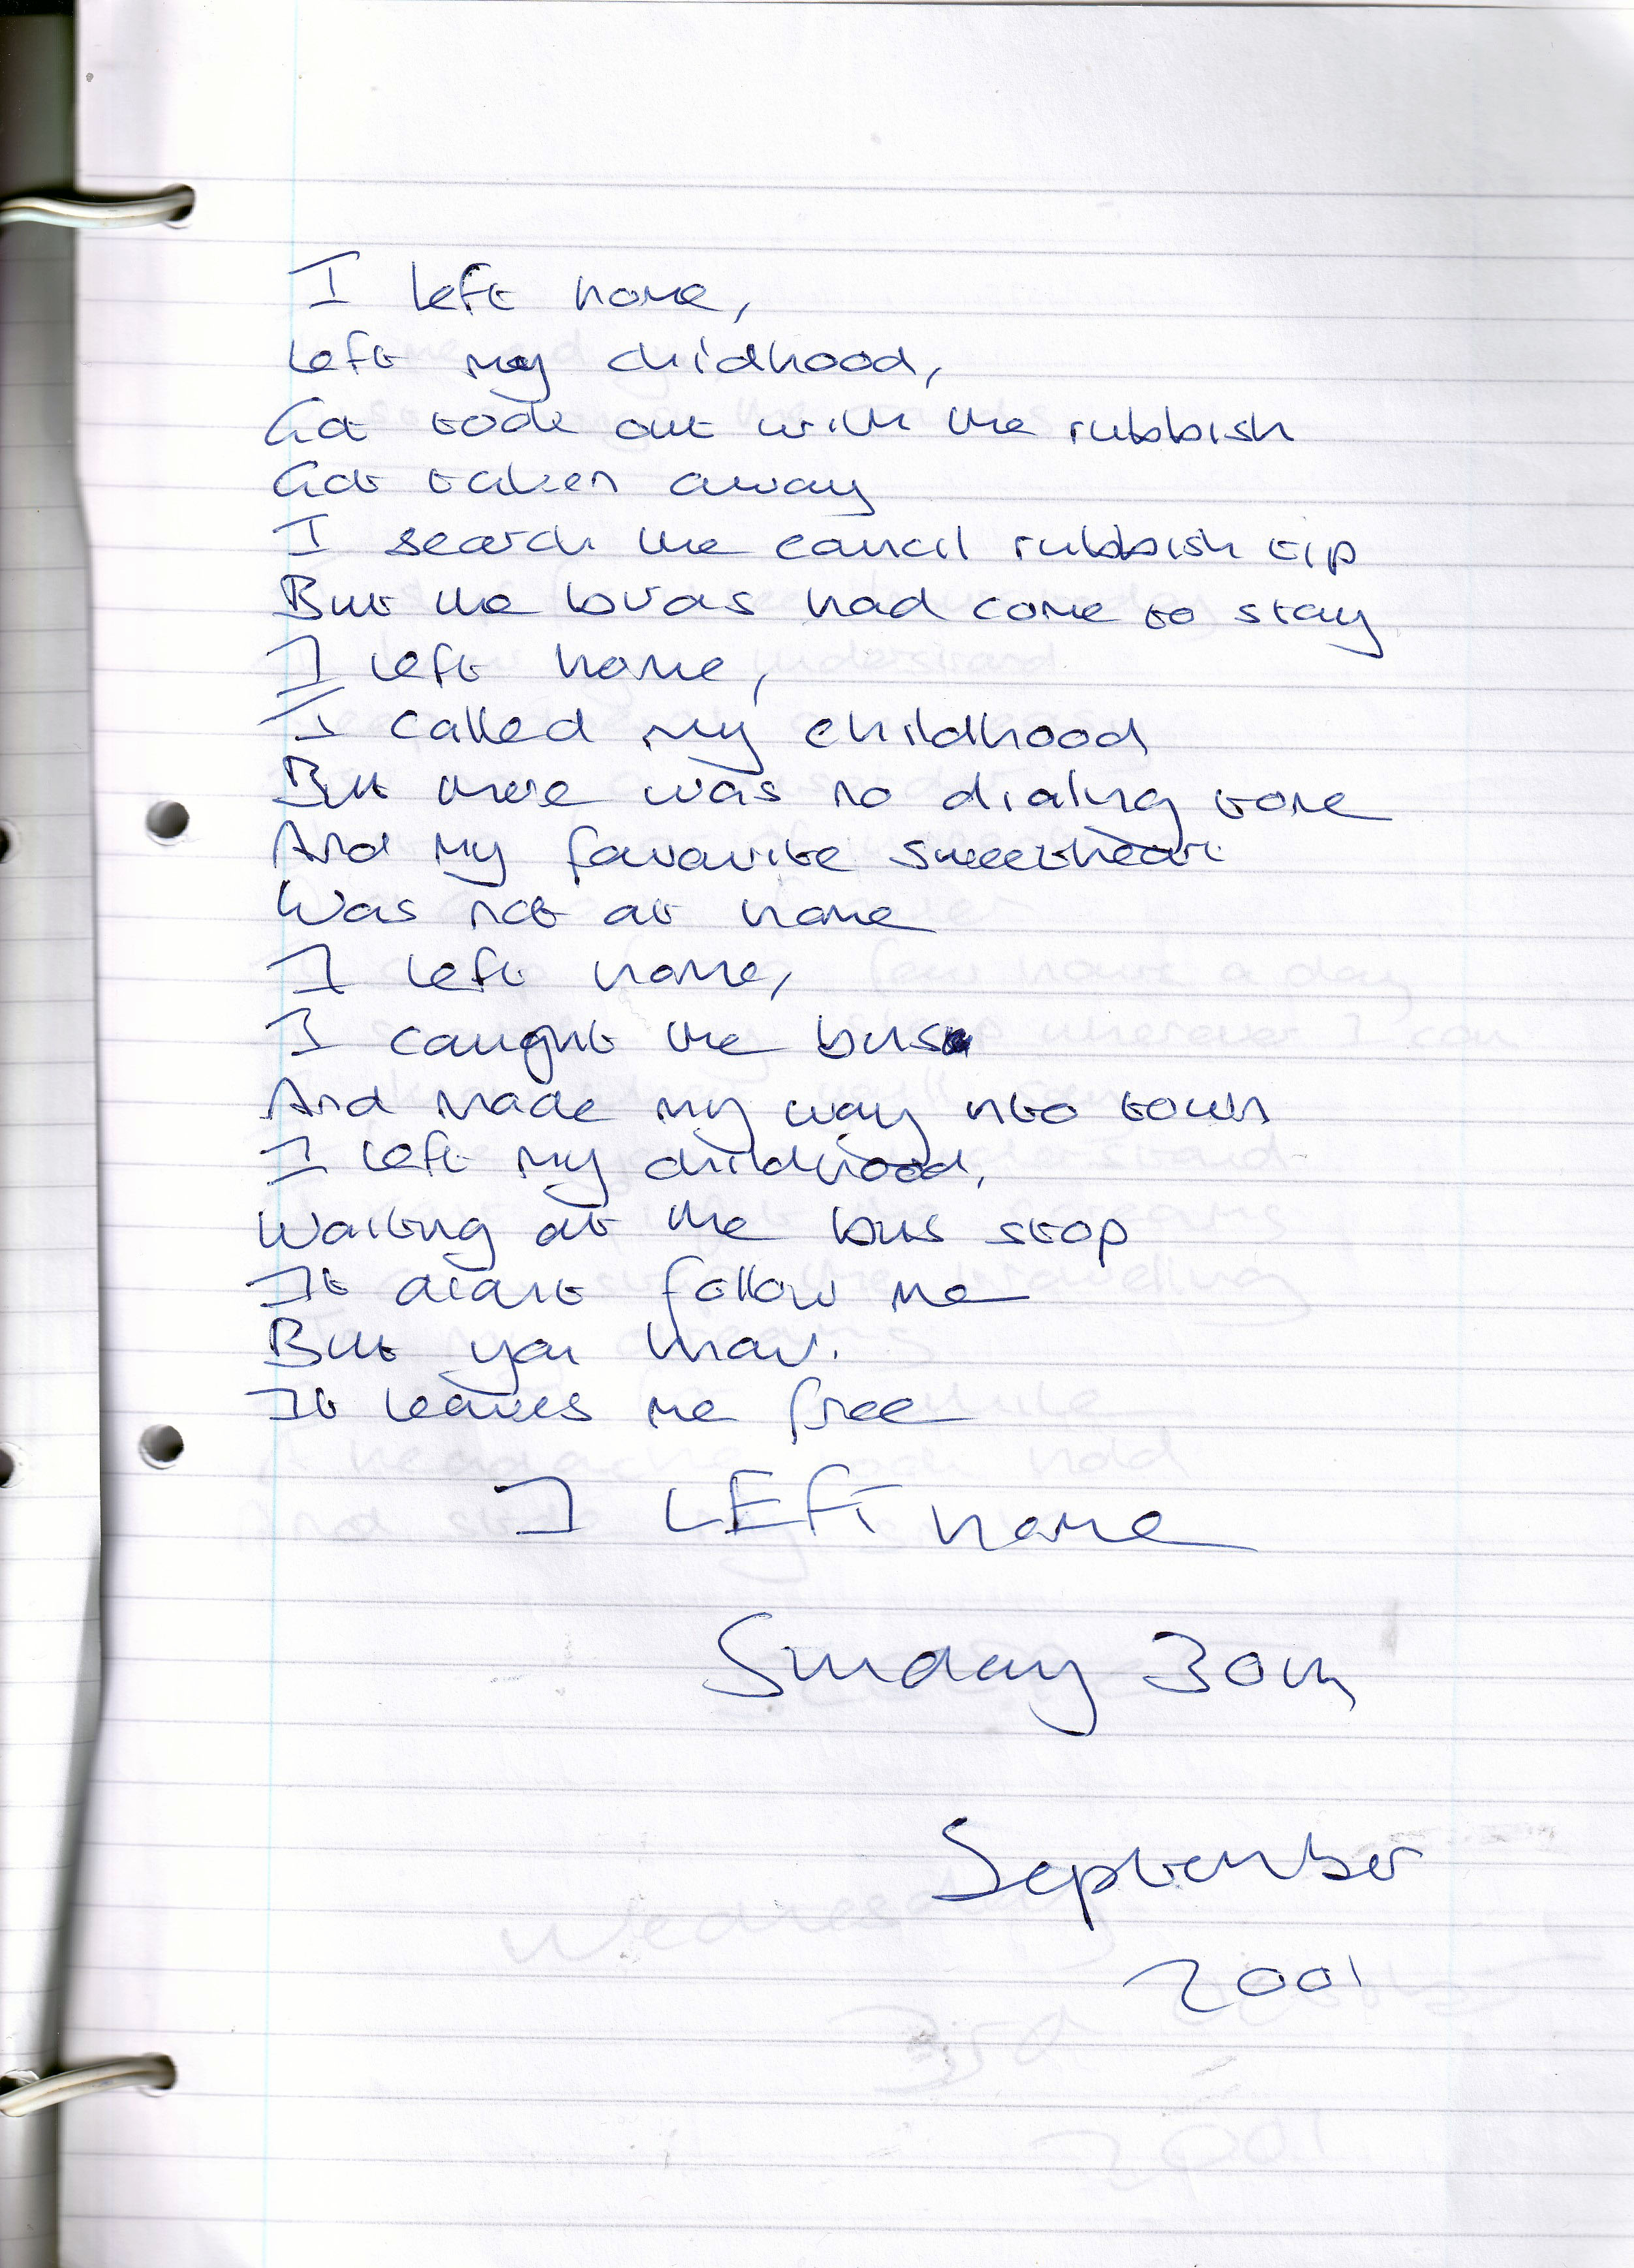 I left home,
Left my childhood,
Got took out with the rubbish
Got taken away
I search the council rubbish tip
But the birds had come to stay
I left home,
I called my childhood
But there was no dialing tone
And my favourite sweetheart
Was not at home
I left home,
I caught the bus
And made my way into town
I left my childhood,
Waiting at the bus stop
It didnt follow me
But you know.
It leaves me free
I LEFT home
Sunday 30th
September
2001